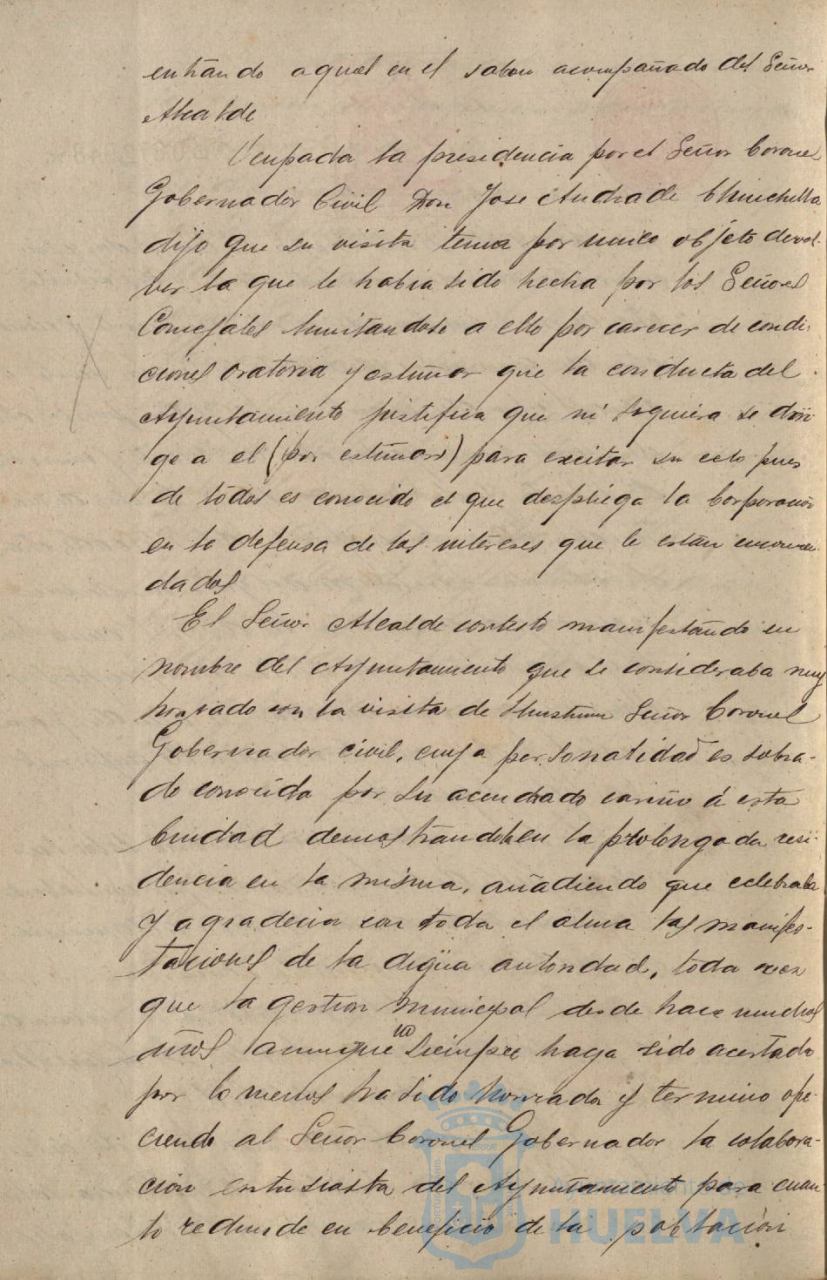 entrando aquel en el salon acompañado del Señor
Alcalde
Ocupada la presidencia por el Señor Coronel
Gobernador Civil Don Jose Andrade Chinchilla
dijo que su visita tenia por unico objeto devol-
ver la que le habia sido hecha por los Señores
Concejales limitandose a ello por carecer de condi-
ciones oratoria y estimar que la conducta del
Ayuntamiento justifica que ni siquiera se diri
ge a el (por estimar) para excitar su celo pues
de todos es conocido el que despliega la Corporacion
en la defensa de los intereses que le estan encomen-
dados
El Señor Alcalde contesto manifestando en
nombre del Ayuntamiento que se consideraba muy
honrado con la visita de Señor Coronel
Gobernador civil, cuya personalidad es sobra-
do conocida por su acendrado cariño á esta
Ciudad demostrando en la prolongada resi-
dencia en la misma, añadiendo que celebraba
y agradecia con toda el alma las manifes-
taciones de la digna autoridad, toda vez
que la gestion municipal desde hace muchos
años aunque no siempre haya sido acertado
por lo menos ha sido honrada y termino ofre-
ciendo al Señor Coronel Gobernador la colabora-
cion entusiasta del Ayuntamiento para cuan-
to redunde en beneficio de la poblacion
HUELVA